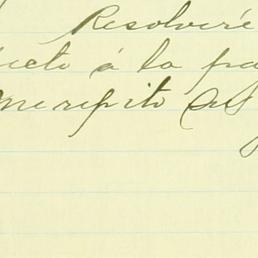 Resolveré
ecto á la pa
me repito su